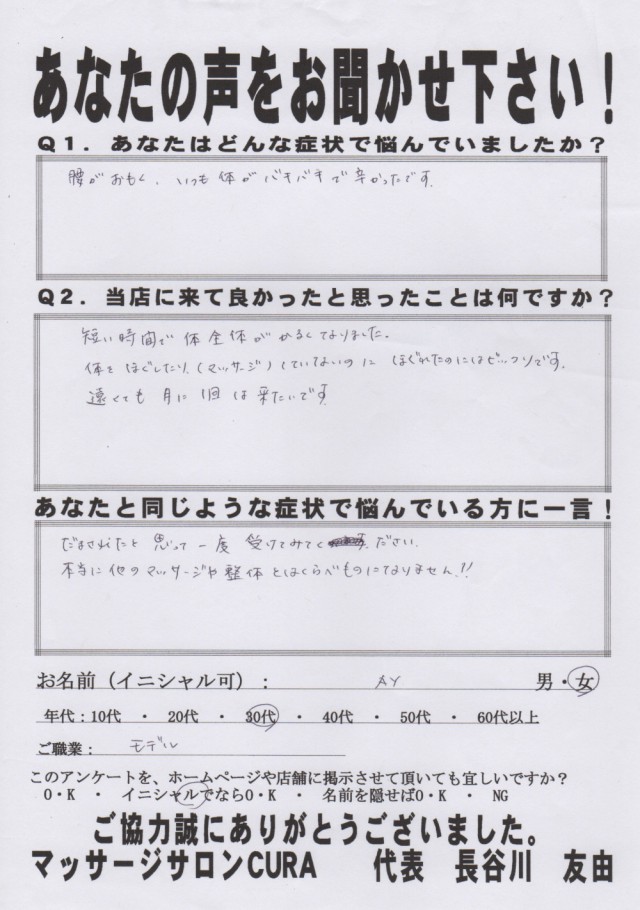 あなたの声をお聞かせ下さい！
Q1．あなたはどんな症状で悩んでいましたか？
腰がおもく、いつも体がバキバキで辛かったです。
Q2．当店に来て良かったと思ったことは何ですか？
短い時間で体全体がかるくなりました。
体をほぐしたり（マッサージ）していないのに ほぐれたのにはビックリです。
遠くても月に1回は来たいです。
あなたと同じような症状で悩んでいる方に一言！
だまされたと思って一度受けてみてください。
本当に他のマッサージや整体とはくらべものになりません!!
お名前（イニシャル可）： AY 男・女
年代：10代 ・ 20代 ・ 30代 ・ 40代 ・ 50代 ・ 60代以上
ご職業： モデル
このアンケートを、ホームページや店舗に掲示させて頂いても宜しいですか？
O・K ・ イニシャルでならO・K ・ 名前を隠せばO・K ・ NG
ご協力誠にありがとうございました。
マッサージサロンCURA 代表 長谷川 友由